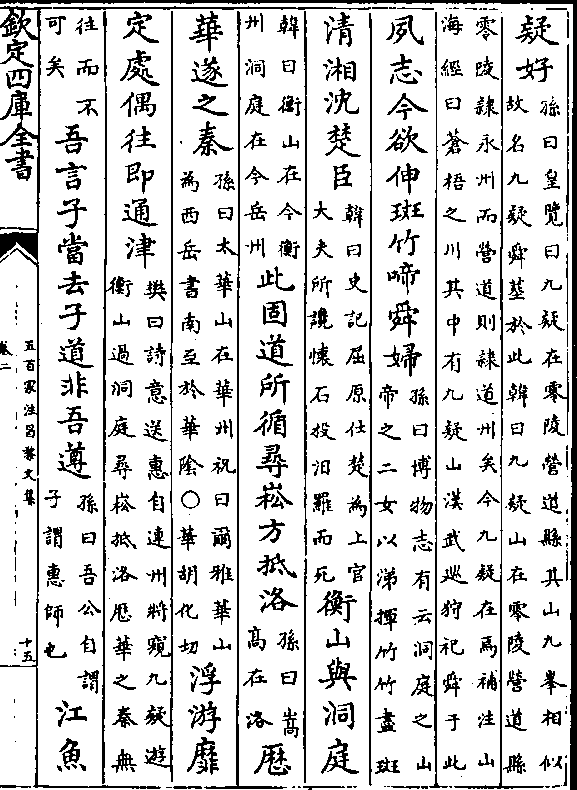 疑好
孫曰皇覽曰九疑在零陵營道縣其山九峯相似
故名九疑舜墓於此韓曰九疑山在零陵營道縣
零陵隷永州而營道則隷道州矣今九疑在焉補注山
海經曰蒼梧之川其中有九疑山漢武巡狩祀舜于此
夙志今欲伸斑竹啼舜婦
孫曰博物志有云洞庭之山
帝之二女以涕揮竹竹盡斑
清湘沈楚臣
韓曰史記屈原仕楚為上官
大夫所讒懷石投汨羅而死
衡山與洞庭
韓曰衡山在今衡
州洞庭在今岳州
此固道所循尋崧方抵洛
孫曰嵩
高在洛
厯
華遂之秦
孫曰太華山在華州祝曰爾雅華山
為西岳書南至於華陰○華胡化切
浮游靡
定處偶往即通津
樊曰詩意送惠自連州將窺九疑遊
衡山過洞庭尋崧抵洛厯華之秦無
往而不
可矣
吾言子當去子道非吾遵
孫曰吾公自謂
子謂惠師也
江魚
欽定四庫全書
五百家注昌黎文集
卷二
十五